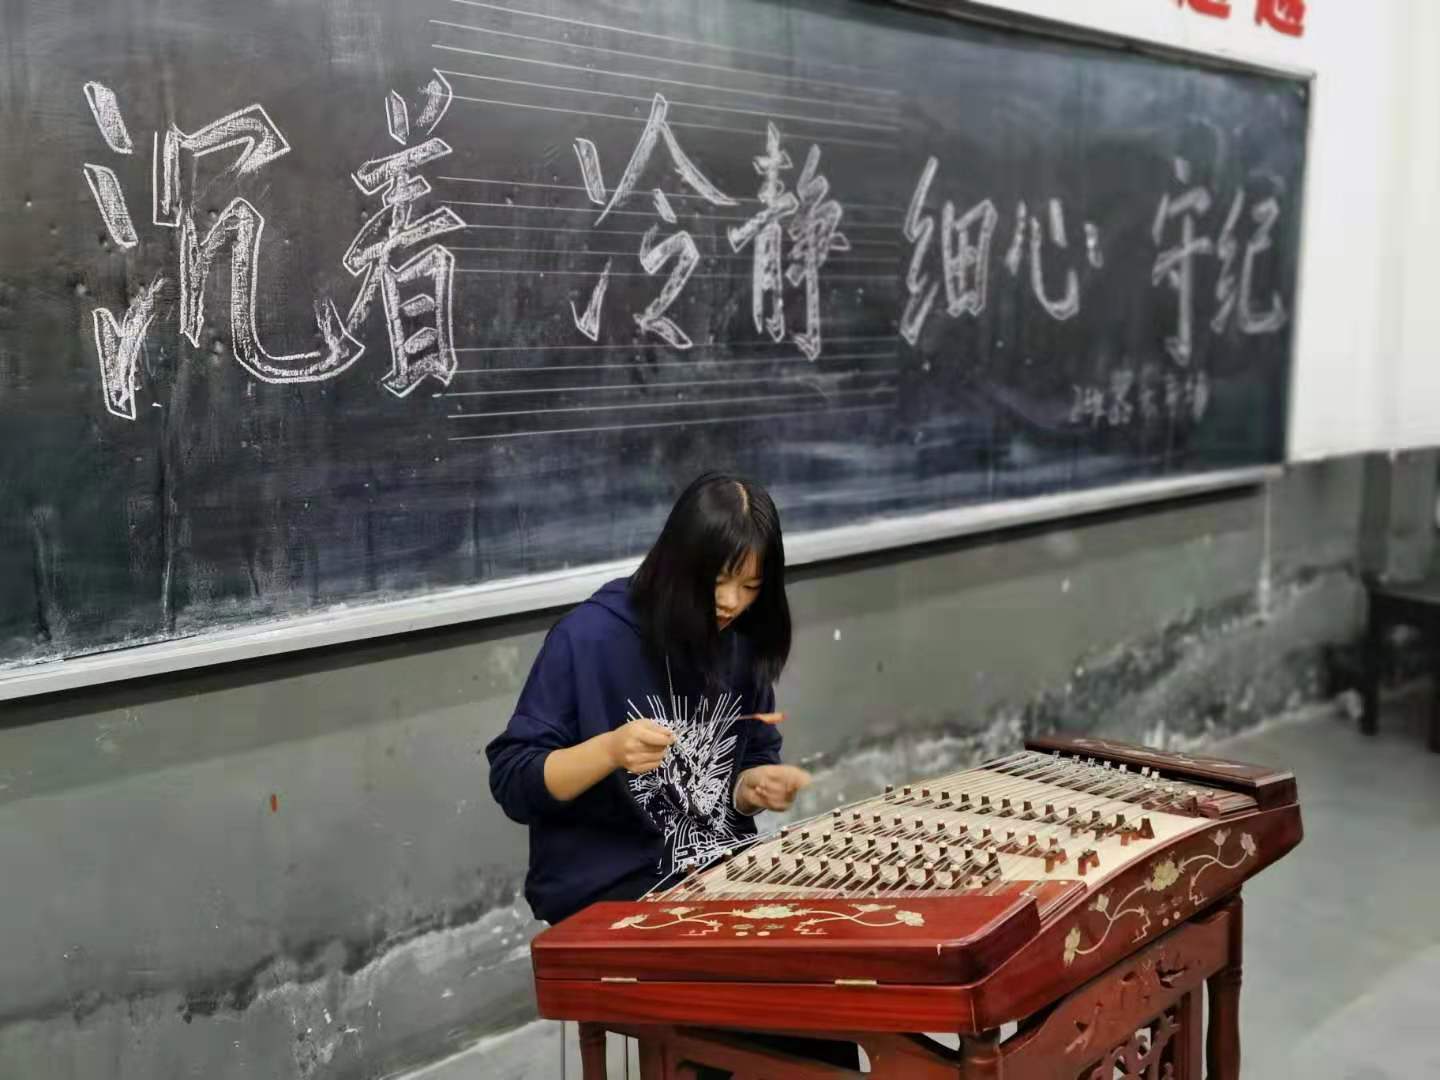 沉着 冷静 细心 守纪